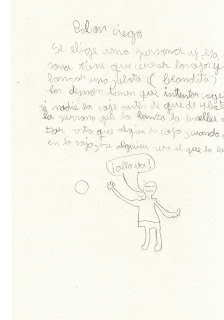 Balon ciego
Se elige una persona y esa
sona tiene que cerrar los ojos y
lanzar una pelota (blandita)
los demas tienen que intentar coge
si nadie la coge antes de que de
la persona que la lanza la vuelve a
asta que alguien la coja, cuando
en la caja, ese alguien sera el que la la
¡allava!